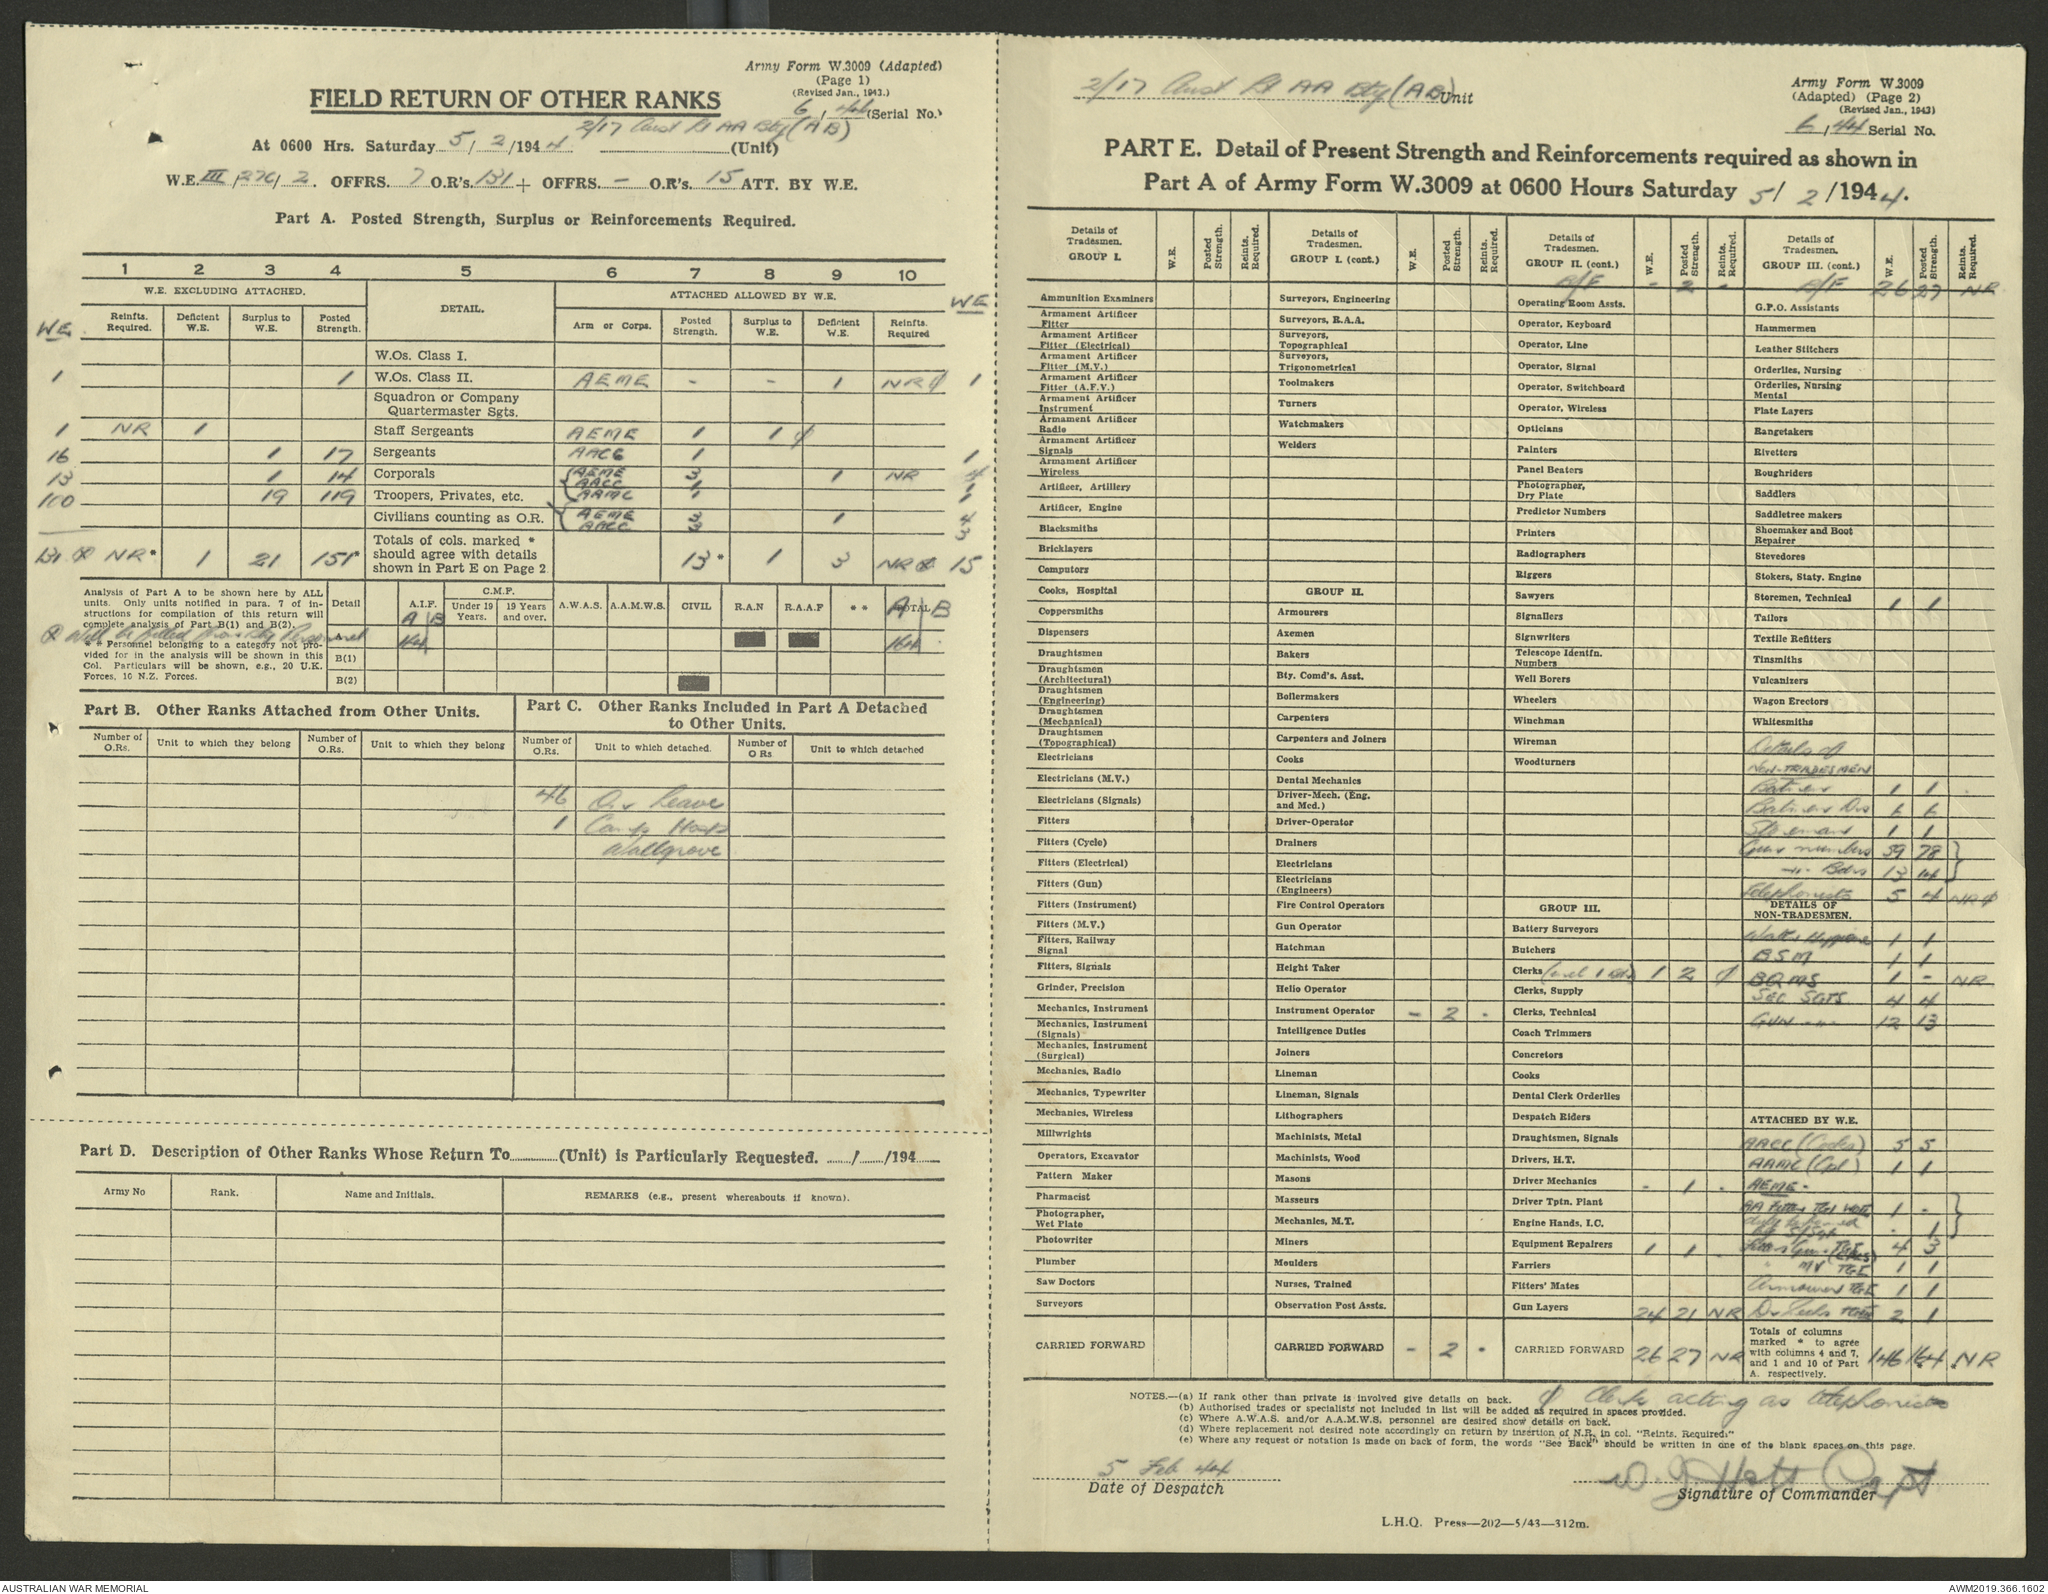 Army Form W.3009 (Adapted)
(Page 1)
(Revised Jan., 1943.)
FIELD RETURN OF OTHER RANKS
6/44 (Serial No.)
2/17 Aust Lt AA Bty (AB)
At 0600 Hrs. Saturday 5/2/1944. (Unit)
W.E. III/276/2. OFFRS. 7 O.R's. 131 + OFFRS. – O.R's. 15 ATT. BY W.E.
Part A. Posted Strength, Surplus or Reinforcements Required.
1 2 3 4 5 6 7 8 9 10
W.E. EXCLUDING ATTACHED. DETAIL. ATTACHED ALLOWED BY W.E.
WE Reinfts. Required. Deficient W.E. Surplus to W.E. Posted Strength. Arm or Corps. Posted Strength. Surplus to W.E. Deficient W.E. Reinfts. Required WE
W.Os. Class I.
1 1 W.Os. Class II. AEME - - 1 NR ϕ 1
Squadron or Company Quartermaster Sgts.
1 NR 1 Staff Sergeants AEME 1 1 ϕ
16 1 17 Sergeants AACC 1 1
13 1 14 Corporals AEME 3 1 NR 4
AACC 1 1
100 19 119 Troopers, Privates, etc. AAMC 1 1
Civilians counting as O.R. AEME 3 1 4
AACC 3 3
131 NR* 1 21 151* Totals of cols. marked * should agree with details shown in Part E on Page 2 13* 1 3 NR 15
Analysis of Part A to be shown here by ALL units. Only units notified in para. 7 of instructions for compilation of this return will complete analysis of Part B(1) and B(2).
Will be filled from Bty Personnel
* * Personnel belonging to a category not provided for in the analysis will be shown in this Col. Particulars will be shown, e.g., 20 U.K. Forces, 10 N.Z. Forces.
Detail A.I.F. C.M.F. Under 19 Years. 19 Years and over. A.W.A.S. A.A.M.W.S. CIVIL R.A.N R.A.A.F * * TOTAL
A B A B
A 164 164
B(1)
B(2)
Part B. Other Ranks Attached from Other Units.
Part C. Other Ranks Included in Part A Detached to Other Units.
Number of O.Rs. Unit to which they belong Number of O.Rs. Unit to which they belong Number of O.Rs. Unit to which detached. Number of O Rs Unit to which detached
46 On Leave
1 Camp Hosp
Wallgrove
Part D. Description of Other Ranks Whose Return To (Unit) is Particularly Requested. / /194
Army No Rank. Name and Initials. REMARKS (e.g., present whereabouts if known).
2/17 Aust Lt AA Bty (AB) Unit
Army Form W.3009
(Adapted) (Page 2)
(Revised Jan., 1943)
6/44 Serial No.
PART E. Detail of Present Strength and Reinforcements required as shown in
Part A of Army Form W.3009 at 0600 Hours Saturday 5/2/1944.
Details of Tradesmen. GROUP I. W.E. Posted Strength. Reints. Required.
Ammunition Examiners
Armament Artificer Fitter
Armament Artificer Fitter (Electrical)
Armament Artificer Fitter (M.V.)
Armament Artificer Fitter (A.F.V.)
Armament Artificer Instrument
Armament Artificer Radio
Armament Artificer Signals
Armament Artificer Wireless
Artificer, Artillery
Artificer, Engine
Blacksmiths
Bricklayers
Computors
Cooks, Hospital
Coppersmiths
Dispensers
Draughtsmen
Draughtsmen (Architectural)
Draughtsmen (Engineering)
Draughtsmen (Mechanical)
Draughtsmen (Topographical)
Electricians
Electricians (M.V.)
Electricians (Signals)
Fitters
Fitters (Cycle)
Fitters (Electrical)
Fitters (Gun)
Fitters (Instrument)
Fitters (M.V.)
Fitters, Railway Signal
Fitters, Signals
Grinder, Precision
Mechanics, Instrument
Mechanics, Instrument (Signals)
Mechanics, Instrument (Surgical)
Mechanics, Radio
Mechanics, Typewriter
Mechanics, Wireless
Millwrights
Operators, Excavator
Pattern Maker
Pharmacist
Photographer, Wet Plate
Photowriter
Plumber
Saw Doctors
Surveyors
CARRIED FORWARD
Details of Tradesmen. GROUP I. (cont.) W.E. Posted Strength. Reints. Required.
Surveyors, Engineering
Surveyors, R.A.A.
Surveyors, Topographical
Surveyors, Trigonometrical
Toolmakers
Turners
Watchmakers
Welders
GROUP II.
Armourers
Axemen
Bakers
Bty. Comd's. Asst.
Boilermakers
Carpenters
Carpenters and Joiners
Cooks
Dental Mechanics
Driver-Mech. (Eng. and Med.)
Driver-Operator
Drainers
Electricians
Electricians (Engineers)
Fire Control Operators
Gun Operator
Hatchman
Height Taker
Helio Operator
Instrument Operator - 2 -
Intelligence Duties
Joiners
Lineman
Lineman, Signals
Lithographers
Machinists, Metal
Machinists, Wood
Masons
Masseurs
Mechanics, M.T.
Miners
Moulders
Nurses, Trained
Observation Post Assts.
CARRIED FORWARD - 2 -
Details of Tradesmen. GROUP II. (cont.) W.E. Posted Strength. Reints. Required.
B/F - 2 -
Operating Room Assts.
Operator, Keyboard
Operator, Line
Operator, Signal
Operator, Switchboard
Operator, Wireless
Opticians
Painters
Panel Beaters
Photographer, Dry Plate
Predictor Numbers
Printers
Radiographers
Riggers
Sawyers
Signallers
Signwriters
Telescope Identfn. Numbers
Well Borers
Wheelers
Winchman
Wireman
Woodturners
GROUP III.
Battery Surveyors
Butchers
Clerks (incl 1 Bdr) 1 2 ϕ
Clerks, Supply
Clerks, Technical
Coach Trimmers
Concretors
Cooks
Dental Clerk Orderlies
Despatch Riders
Draughtsmen, Signals
Drivers, H.T.
Driver Mechanics - 1 -
Driver Tptn. Plant
Engine Hands, I.C.
Equipment Repairers 1 1 -
Farriers
Fitters' Mates
Gun Layers 24 21 NR
CARRIED FORWARD 26 27 NR
Details of Tradesmen. GROUP III. (cont.) W.E. Posted Strength. Reints. Required.
B/F 26 27 NR
G.P.O. Assistants
Hammermen
Leather Stitchers
Orderlies, Nursing
Orderlies, Nursing Mental
Plate Layers
Rangetakers
Rivetters
Roughriders
Saddlers
Saddletree makers
Shoemaker and Boot Repairer
Stevedores
Stokers, Staty. Engine
Storemen, Technical 1 1
Tailors
Textile Refitters
Tinsmiths
Vulcanizers
Wagon Erectors
Whitesmiths
Details of
NON-TRADESMEN
Batmen 1 1
Batmen Dvs 6 6
Storemans 1 1
Gun numbers 59 78
-"- Bdrs 13 14
Telephonists 5 4 NR ϕ
DETAILS OF NON-TRADESMEN.
Water Hygiene 1 1
BSM 1 1
BQMS 1 - NR
Sec Sgts 4 4
GUN -"- 12 13
ATTACHED BY W.E.
AACC (Cooks) 5 5
AAMC (Cpl) 1 1
AEME -
AA Fitter TGI WOII 1 -
S/Sgt - 1
4 3
" MV TGI 1 1
Armourer TGI 1 1
2 1
Totals of columns marked * to agree with columns 4 and 7, and 1 and 10 of Part A. respectively. 146 164 NR
NOTES.—(a) If rank other than private is involved give details on back. ϕ Clerk acting as telephonist
(b) Authorised trades or specialists not included in list will be added as required in spaces provided.
(c) Where A.W.A.S. and/or A.A.M.W.S. personnel are desired show details on back.
(d) Where replacement not desired note accordingly on return by insertion of N.R. in col. "Reints. Required."
(e) Where any request or notation is made on back of form, the words "See Back" should be written in one of the blank spaces on this page.
5 Feb 44
Date of Despatch
Capt
Signature of Commander
L.H.Q. Press—202—5/43—312m.
AUSTRALIAN WAR MEMORIAL
AWM2019.366.1602